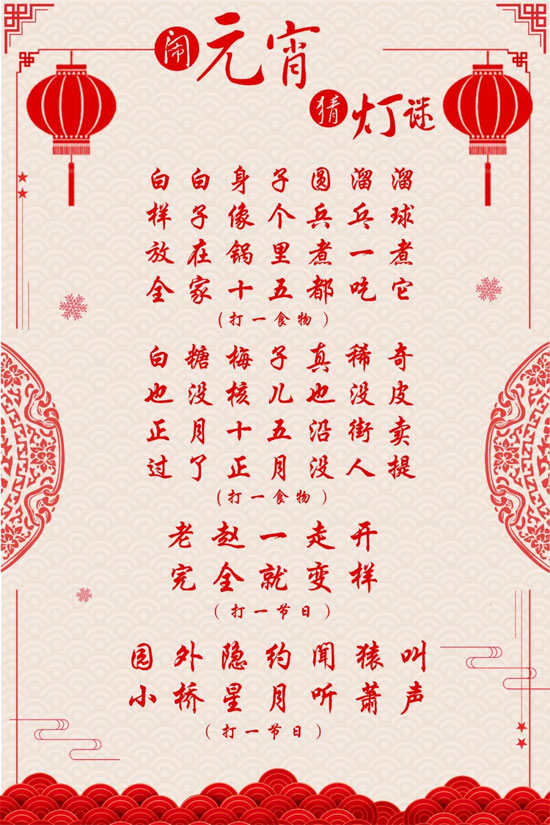 闹元宵
猜灯谜
白白身子圆溜溜
样子像个兵乓球
放在锅里煮一煮
全家十五都吃它
(打一食物)
白糖梅子真稀奇
也没核儿也没皮
正月十五沿街卖
过了正月没人提
(打一食物)
老赵一走开
完全就变样
(打一节日)
园外隐约闻猿叫
小桥星月听萧声
(打一节日)